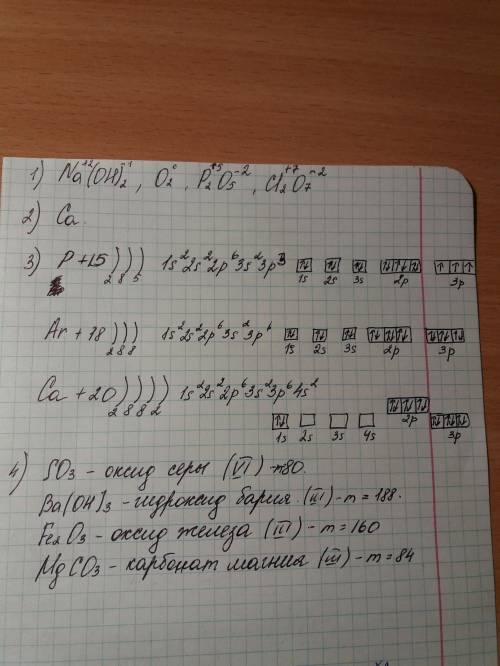 1) Na⁺²(OH)₂⁻¹, O₂⁰, P₂⁺⁵O₅⁻², Cl₂⁺⁷O₇⁻²
2) Ca.
3) P +15 ) ) ) 1s²2s²2p⁶3s²3p³
2 8 5 1s 2s 3s 2p 3p
Ar +18 ) ) ) 1s²2s²2p⁶3s²3p⁶
2 8 8 1s 2s 3s 2p 3p
Ca +20 ) ) ) ) 1s²2s²2p⁶3s²3p⁶4s²
2 8 8 2 1s 2s 3s 4s 2p 3p
4) SO₃ - оксид серы (VI) - m80.
Ba(OH)₃ - гидроксид бария. (III) - m = 188.
Fe₂O₃ - оксид железа (III) - m = 160
MgCO₃ - карбонат магния (III) - m = 84